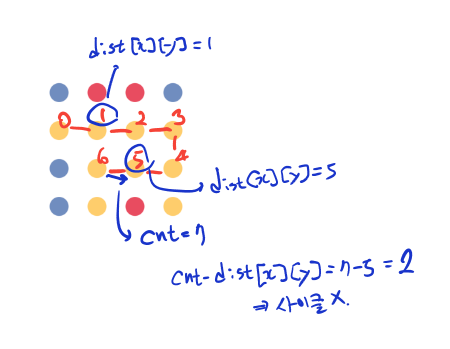 dist[x][y]=1
0 1 2 3
6 5 4
dist[x][y]=5
cnt=7
cnt-dist[x][y]=7-5=2
⇒ 사이클 X.